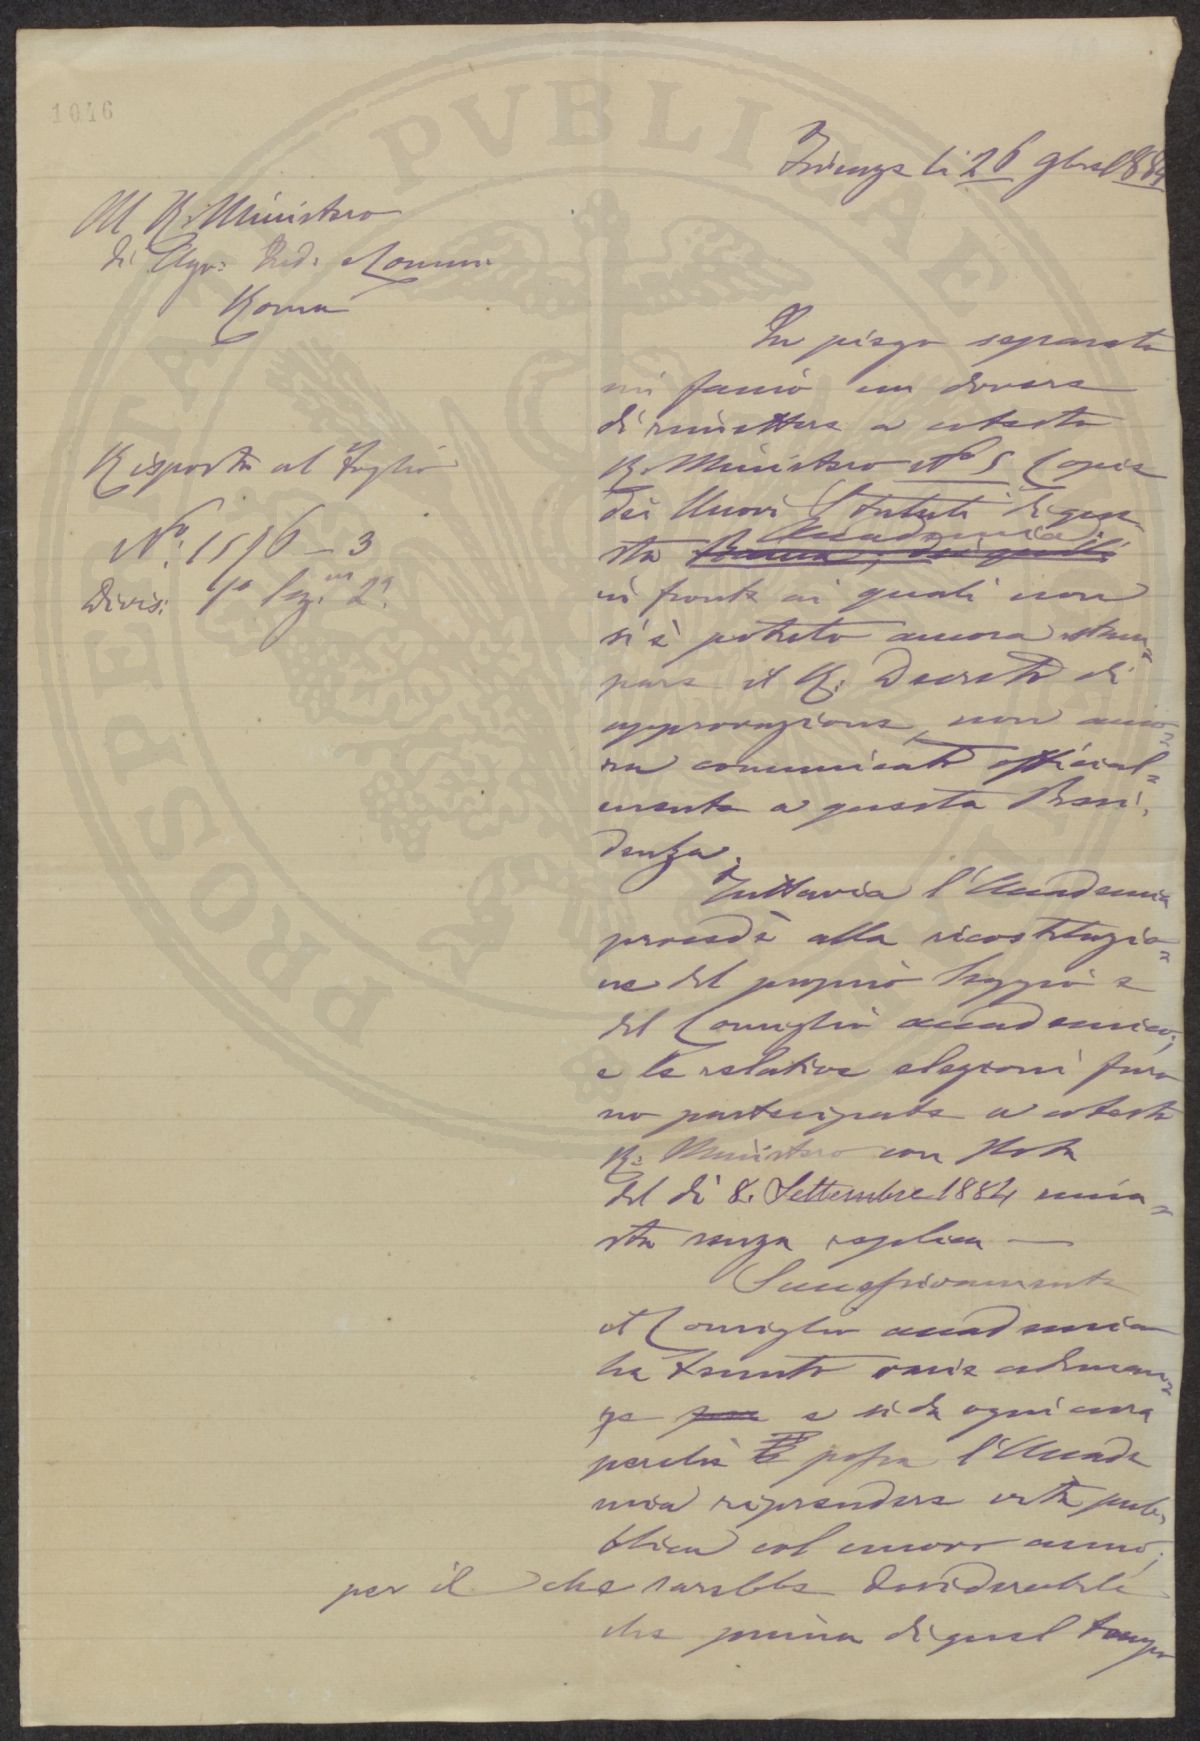 1046
Firenze li 26 9bre 1884
Al R. Ministero
di Agr: Ind: e Comm.
Roma
Risposta al Foglio
N°: 1576 - 3
Divis: 1a Sez.ne 2a.
In piego separato
mi faccio un dovere
di rimettere a cotesto
R. Ministero N° 5 Copie
dei Nuovi Statuti di que-
Accademia,
sta
in fronte ai quali non
si è potuto ancora stam=
pare il R. Decreto di
approvazione, non anco=
ra comunicato official=
mente a questa Presi,
denza.
Tuttavia l'Accademia
procedè alla ricostituzio=
ne del proprio Seggio e
del Consiglio accademico;
e le relative elezioni furo
no partecipate a cotesto
R. Ministero con Nota
del dì 8. Settembre 1884 rima=
sta senza replica —
Successivamente
il Consiglio accademico
ha tenuto varie adunan=
ze e si dà ogni cura
perchè possa l'Accade
mia riprendere vita pub=
blica col nuovo anno;
per il che sarebbe desiderabile
che prima di quel tempo